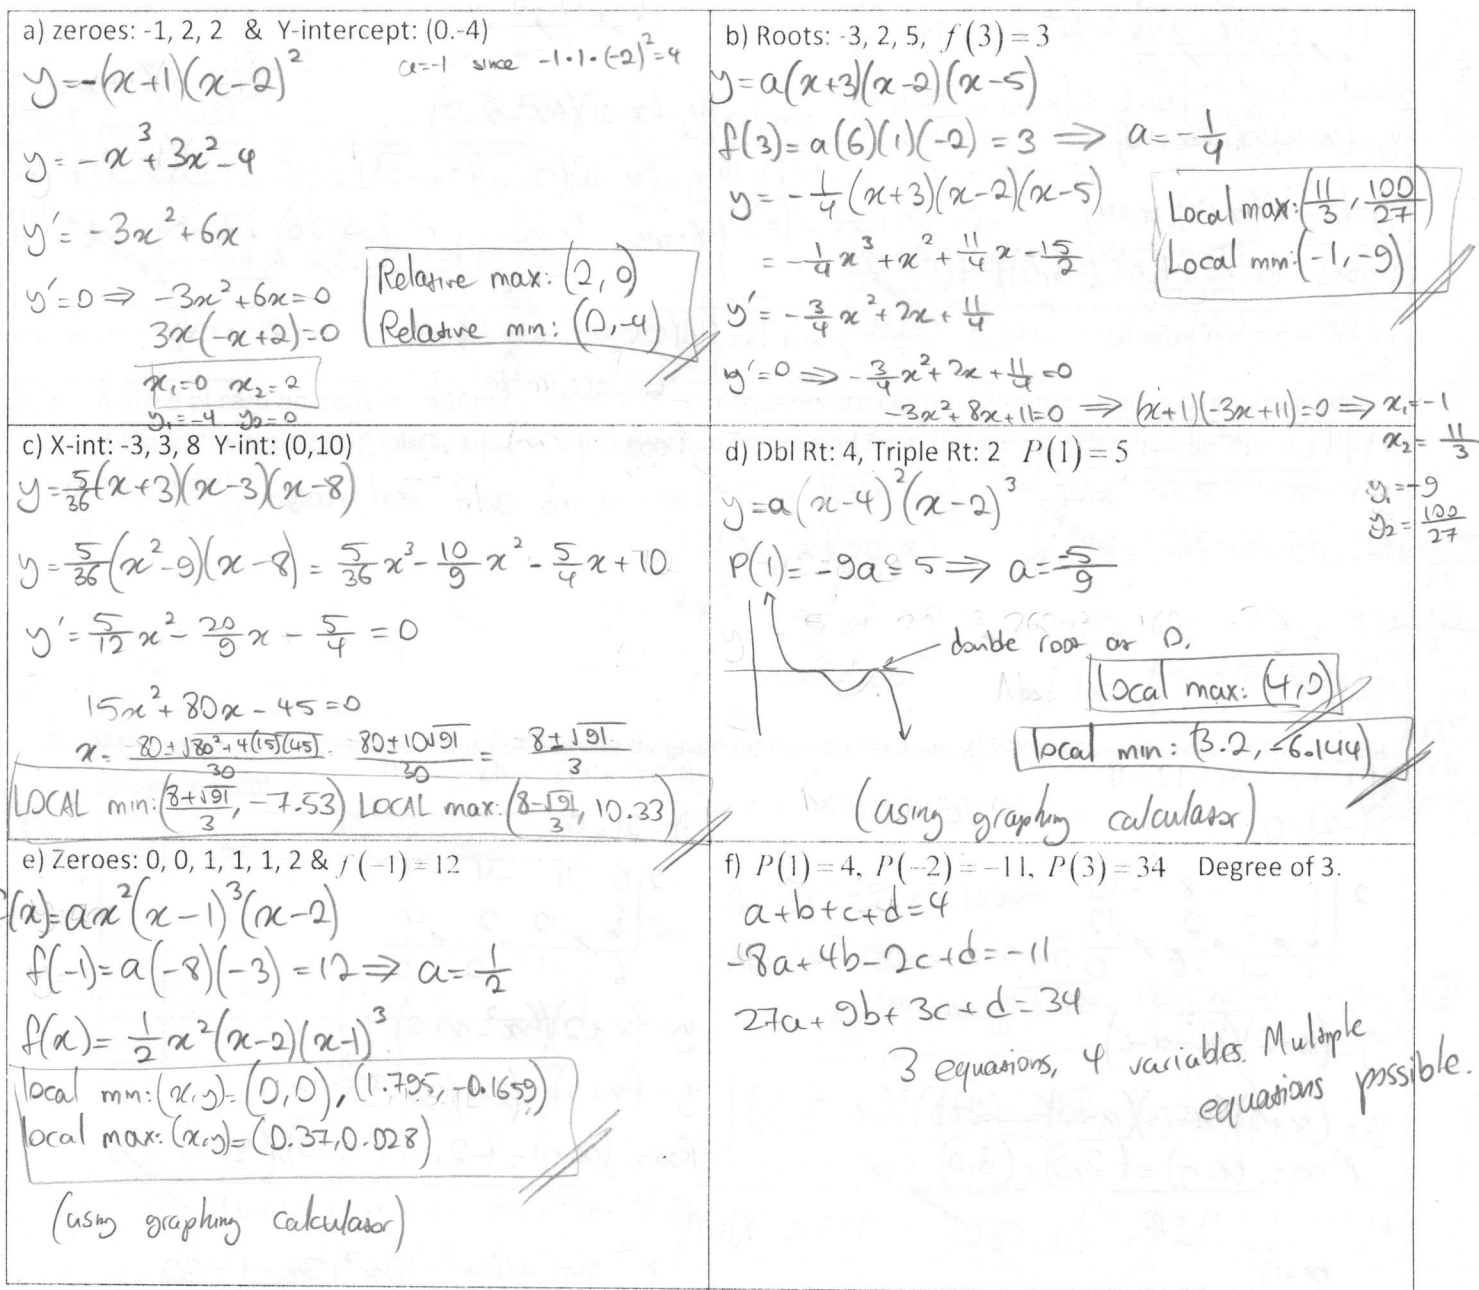 a) zeroes: -1, 2, 2 & Y-intercept: (0.-4)
y=-(x+1)(x-2)²
a=-1 since -1·1·(-2)²=4
y=-x³+3x²-4
y'=-3x²+6x
y'=0 ⇒ -3x²+6x=0
3x(-x+2)=0
x₁=0 x₂=2
y₁=-4 y₂=0
Relative max: (2,0)
Relative min: (0,-4)
b) Roots: -3, 2, 5, f(3)=3
y=a(x+3)(x-2)(x-5)
f(3)=a(6)(1)(-2)=3 ⇒ a=-1/4
y=-1/4(x+3)(x-2)(x-5)
=-1/4x³+x²+11/4x-15/2
y'=-3/4x²+2x+11/4
y'=0 ⇒ -3/4x²+2x+11/4=0
-3x²+8x+11=0 ⇒ (x+1)(-3x+11)=0 ⇒ x₁=-1
x₂=11/3
y₁=-9
y₂=100/27
Local max:(11/3, 100/27)
Local min:(-1,-9)
c) X-int: -3, 3, 8 Y-int: (0,10)
y=5/36(x+3)(x-3)(x-8)
y=5/36(x²-9)(x-8)=5/36x³-10/9x²-5/4x+10
y'=5/12x²-20/9x-5/4=0
15x²+80x-45=0
x=80±√80²+4(15)(45)/30 80±10√91/30=8±√91/3
LOCAL min:(8+√91/3,-7.53) LOCAL max:(8-√91/3, 10.33)
d) Dbl Rt: 4, Triple Rt: 2 P(1)=5
y=a(x-4)²(x-2)³
P(1)=-9a=5 ⇒ a=-5/9
double root at 0.
local max: (4,0)
local min: (3.2,-6.144)
(using graphing calculator)
e) Zeroes: 0, 0, 1, 1, 1, 2 & f(-1)=12
f(x)=ax²(x-1)³(x-2)
f(-1)=a(-8)(-3)=12 ⇒ a=1/2
f(x)=1/2x²(x-2)(x-1)³
local min:(x,y)=(0,0),(1.795,-0.1659)
local max:(x,y)=(0.37,0.028)
(using graphing calculator)
f) P(1)=4, P(-2)=-11, P(3)=34 Degree of 3.
a+b+c+d=4
-8a+4b-2c+d=-11
27a+9b+3c+d=34
3 equations, 4 variables. Multiple
equations possible.